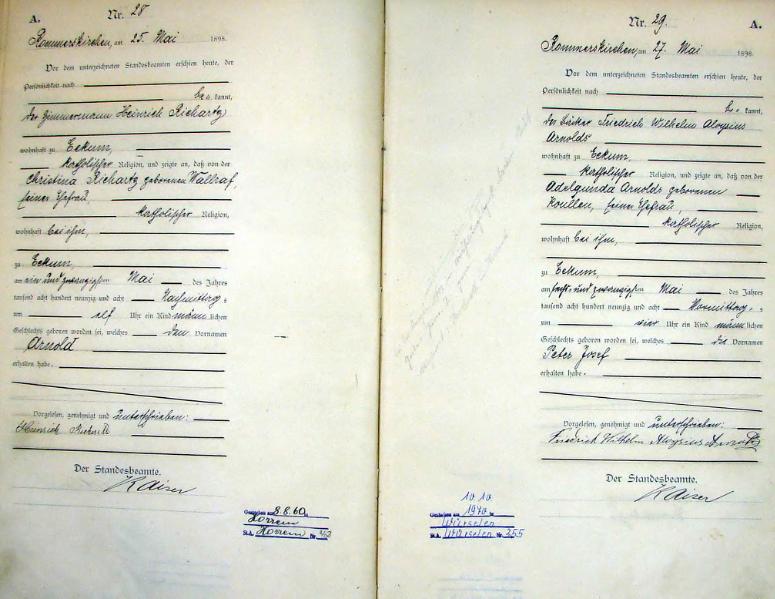 A.
Nr. 28
Rommerskirchen, am 25. Mai 1898.
Vor dem unterzeichneten Standesbeamten erschien heute, der
Persönlichkeit nach
be kannt,
der Zimmermann Heinrich Richartz
wohnhaft zu Eckum,
katholischer Religion, und zeigte an, daß von der
Christina Richartz geborenen Wallraf,
seiner Ehefrau,
katholischer Religion,
wohnhaft bei ihm,
zu Eckum,
am vier und zwanzigsten Mai des Jahres
tausend acht hundert neunzig und acht Nachmittags
um elf Uhr ein Kind männlichen
Geschlechts geboren worden sei, welches den Vornamen
Arnold
erhalten habe.
Vorgelesen, genehmigt und unterschrieben:
Heinrich
Der Standesbeamte.
Kaiser
Gestorben am 8.8.60 in
Horrem
St.A. Horrem Nr.
Nr. 29.
A.
Rommerskirchen, am 27. Mai 1898.
Vor dem unterzeichneten Standesbeamten erschien heute, der
Persönlichkeit nach
be kannt,
der Bäcker Friedrich Wilhelm Aloysius
Arnolds
wohnhaft zu Eckum,
katholischer Religion, und zeigte an, daß von der
Adelgunda Arnolds geborenen
Koullen, seiner Ehefrau,
katholischer Religion,
wohnhaft bei ihm,
zu Eckum,
am sechs und zwanzigsten Mai des Jahres
tausend acht hundert neunzig und acht Vormittags
um vier Uhr ein Kind männlichen
Geschlechts geboren worden sei, welches die Vornamen
Peter Josef
erhalten habe.
Vorgelesen, genehmigt und unterschrieben:
Friedrich Wilhelm Aloysius Arnolds
Der Standesbeamte.
Kaiser
10.10.
Gestorben am 1970 in
Würselen
St.A. Würselen Nr. 355